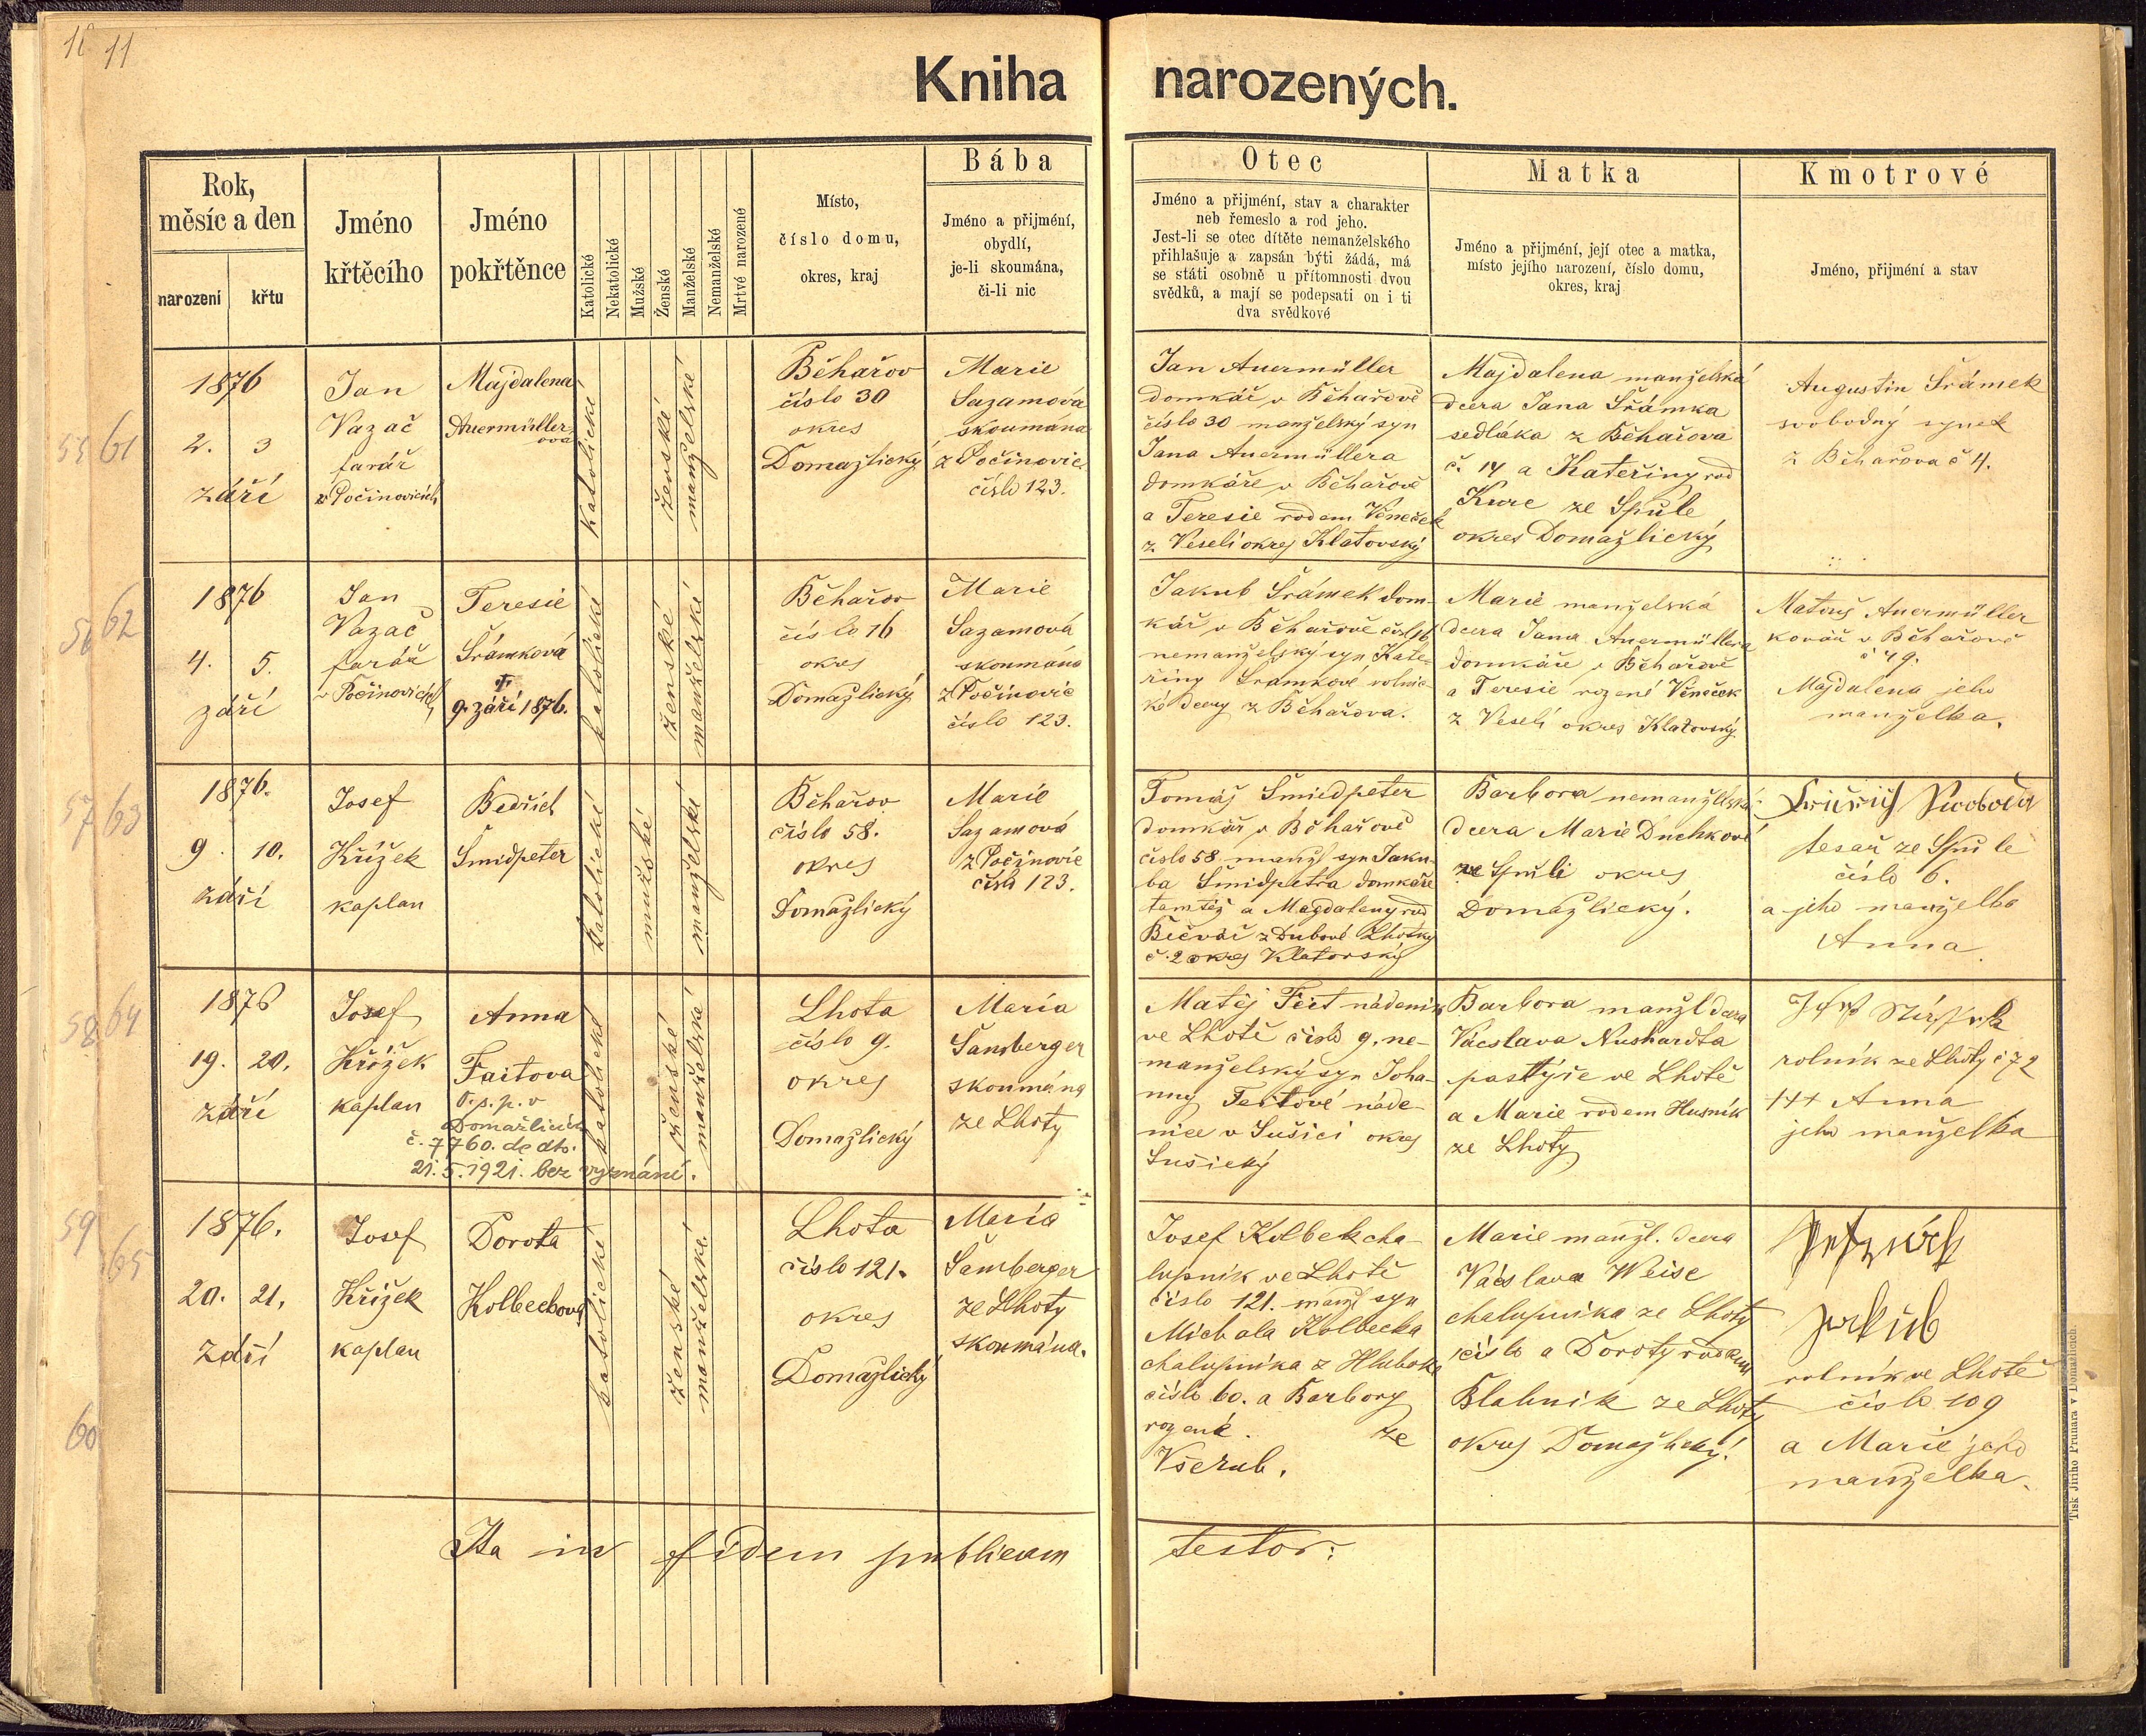 11
Kniha narozených.
Rok,
měsíc a den
narození
křtu
Jméno
křtěcího
Jméno
pokřtěnce
Katolické
Nekatolické
Mužské
Ženské
Manželské
Nemanželské
Mrtvé narozené
Místo,
číslo domu,
okres, kraj
Bába
Jméno a přijmění,
obydlí,
je-li skoumána,
či-li nic
Otec
Jméno a přijmění, stav a charakter
neb řemeslo a rod jeho.
Jest-li se otec dítěte nemanželského
přihlašuje a zapsán býti žádá, má
se státi osobně u přítomnosti dvou
svědků, a mají se podepsati on i ti
dva svědkové
Matka
Jméno a přijmění, její otec a matka,
místo jejího narození, číslo domu,
okres, kraj
Kmotrové
Jméno, přijmění a stav
55 61
1876
2. 3
září
Jan
Vazač
farář
v Počinovicích
Majdalena
Auermüller-
ova
katolické
ženské
manželské
Běhařov
číslo 30
okres
Domažlický
Marie
Sazamová
skoumána
z Počinovic
číslo 123.
Jan Auermüller
domkář v Běhařově
číslo 30 manželský syn
Jana Auermüllera
domkáře v Běhařově
a Teresie rodem Věneček
z Veselí okres Klatovský
Majdalena manželská
dcera Jana Šrámka
sedláka z Běhařova
č. 14 a Kateřiny rod
Kure ze Spůle
okres Domažlický
Augustin Šrámek
svobodný synek
z Běhařova č 4.
56 62
1876
4. 5.
září
Jan
Vazač
farář
v Počinovicích
Teresie
Šrámková
†
9. září 1876.
katolické
ženské
manželské
Běhařov
číslo 16
okres
Domažlický
Marie
Sazamová
skoumána
z Počinovic
číslo 123.
Jakub Šrámek dom-
kář v Běhařově čísl 16
nemanželský syn Kate-
řiny Šrámkové rolnic-
ké dcery z Běhařova.
Marie manželská
dcera Jana Auermüllera
domkáře v Běhařově
a Teresie rozené Věneček
z Veselí okres Klatovský
Matouš Auermüller
kovář v Běhařově
č 49.
Majdalena jeho
manželka.
57 63
1876.
9. 10.
září
Josef
Křížek
kaplan
Bedřich
Šmidpeter
katolické
mužské
manželské
Běhařov
číslo 58.
okres
Domažlický
Marie
Sazamová
z Počinovic
číslo 123.
Tomáš Šmiedpeter
domkář v Běhařově
číslo 58 manž syn Jaku-
ba Šmidpetra domkáře
tamtéž a Magdaleny rod
Bečvář z Dubové Lhotky
č. 2 okres Klatovský
Barbora nemanželská
dcera Marie Duchkové
ze Spůli okres
Domažlický.
Swoboda
tesař ze Spůle
číslo 6.
a jeho manželka
Anna.
58 64
1876
19. 20.
září
Josef
Křížek
kaplan
Anna
Faitova
O.s.p. v
Domažlicích
č. 7760. de dto.
21.5.1921. bez vyznání.
katolické
ženské
manželské
Lhota
číslo 9.
okres
Domažlický
Maria
Šamberger
skoumána
ze Lhoty
Matěj Feit nádeník
ve Lhotě číslo 9. ne-
manželský syn Joha-
nny Feitové náde-
nice v Sušici okres
Sušický
Barbora manžl dcera
Václava Nushardta
pastýře ve Lhotě
a Marie rodem Husník
ze Lhoty
rolník ze Lhoty č 72
+++ Anna
jeho manželka
59 65
1876.
20. 21.
září
Josef
Křížek
kaplan
Dorota
Kolbeckova
katolické
ženské
manželské
Lhota
číslo 121.
okres
Domažlický
Maria
Šamberger
ze Lhoty
skoumána.
Josef Kolbek cha-
lupník ve Lhotě
číslo 121. manž syn
Michala Kolbecka
chalupníka z Hluboke
číslo 60. a Barbory
rozené. ze
Všerub.
Marie manžl. dcera
Václava Weise
chalupníka ze Lhoty
číslo a Doroty rodem
Blahnik ze Lhoty
okres Domažlický.
Jakub
rolník ve Lhotě
číslo 109
a Marie jeho
manželka.
60
Ita in fidem publicam testor:
Tisk Jiřího Prunara v Domažlicích.